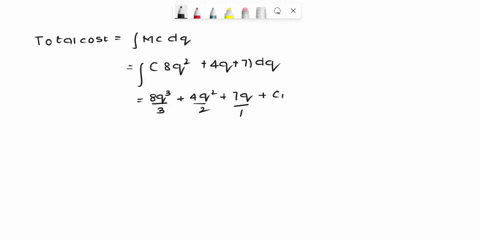 Total cost = ∫ Mc dq
= ∫ (8q² + 4q + 7) dq
= 8q³/3 + 4q²/2 + 7q/1 + C₁